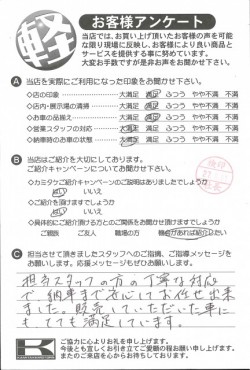 軽
お客様アンケート
当店では、お買い上げ頂いたお客様の声を可能
な限り現場に反映し、お客様により良い商品と
サービスを提供する事に努めています。
大変お手数ですが是非お声をお聞かせ下さい。
A 当店を実際にご利用になった印象をお聞かせ下さい。
◇店の印象 大満足 満足 ふつう やや不満 不満
◇店内・展示場の清掃 大満足 満足 ふつう やや不満 不満
◇お車の品揃え 大満足 満足 ふつう やや不満 不満
◇営業スタッフの対応 大満足 満足 ふつう やや不満 不満
◇納車時のお車の状態 大満足 満足 ふつう やや不満 不満
B 当店はご紹介を大切にしております。
ご紹介キャンペーンについてお聞かせ下さい。
◇カミタケご紹介キャンペーンのご説明はありましたでしょうか
はい いいえ
◇ご紹介を頂けますでしょうか
はい いいえ
◇具体的にご紹介頂ける方とのご関係をお聞かせ頂けますでしょうか
ご親族 ご友人 職場の方 機会があれば紹介したい
C 担当させて頂きましたスタッフへのご指摘・ご指導メッセージを
お願いします。応援メッセージもぜひお願いします。
担当スタッフの方の丁寧な対応
で 納車まで安心してお任せ出来
ました。販売していただいた車に
もとても満足しています。
K
ご協力に心よりお礼を申し上げます。
今後とも宜しくお引き立てご愛顧の程お願い申し上げます。
またのご来店を心からお待ちしております。